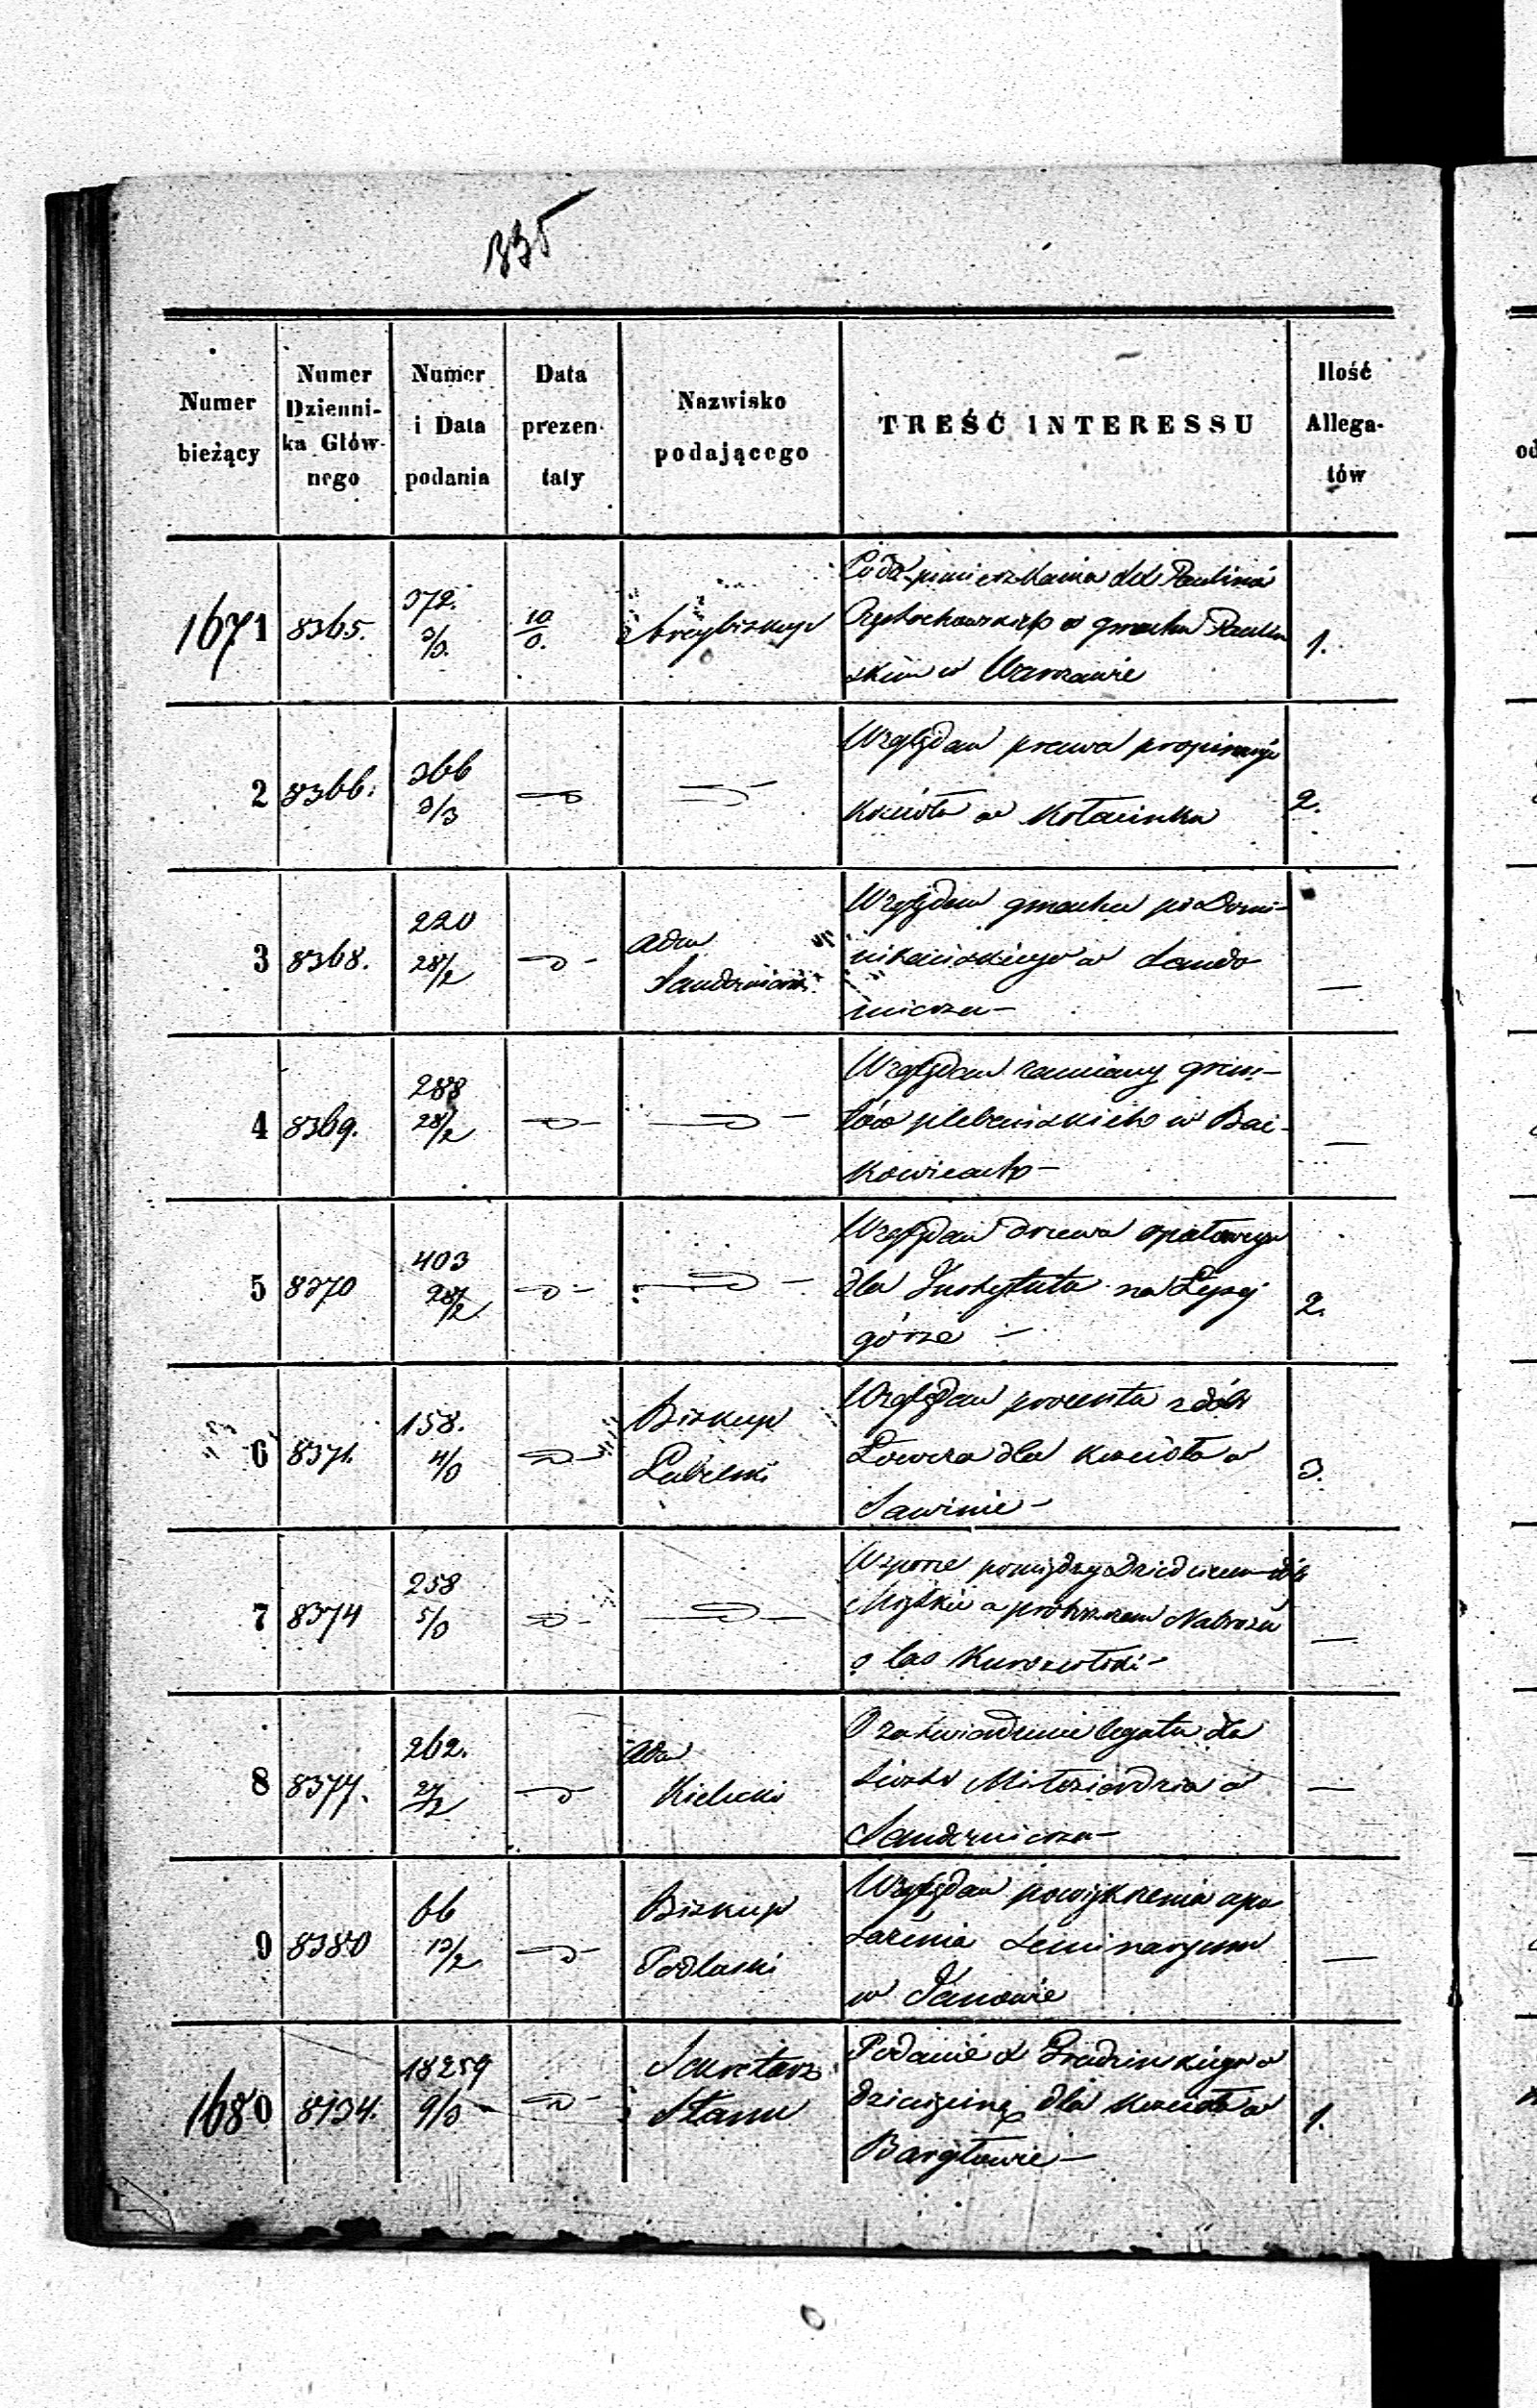 335
Numer bieżący
Numer Dzienni- ka Głów- nego
Numer i Data podania
Data prezen- taty
Nazwisko podającego
TREŚĆ INTERESSU
Ilość Allega- tów
1671 8365. 372. 3/3. 10/3. Arcybiskup
pomieszkania dla
w gmachu
skim w Warszawie
1.
2 8366. 366 3/3
Względem prawa propinacyi
kościoła w Kołacinku
2.
3 8368. 220 28/2 Adm Sandomierski
Względem gmachu po Domi-
nikańskiego w Sando
mierzu –
—
4 8369. 288 28/2
Względem zamiany grun-
tów plebańskich w Bać-
kowicach –
—
5 8370 403 28/2
Względem drzewa opałowego
dla Instytutu na Łysej
górze –
2.
6 8371. 158. 4/3 Biskup Lubelski
Względem procentu z dóbr
Łowcza dla kościoła w
Sawinie –
3.
7 8374 258 5/3
W sporze pomiędzy Dziedzicem dób
a proboszczem Nabroża
o las
—
8 8377. 262. 27/2 Adm Kielecki
O zatwierdzenie legatu dla
Sióstr Miłosierdzia w
Sandomierzu –
—
9 8380 66 13/2 Biskup Podlaski
Względem powiększenia upo
sażenia Seminaryum
w Janowie
—
1680 8134. 18259 9/3 Sekretarz Stanu
Podanie o
dziesięcinę dla kościoła w
Bargłowie –
1.